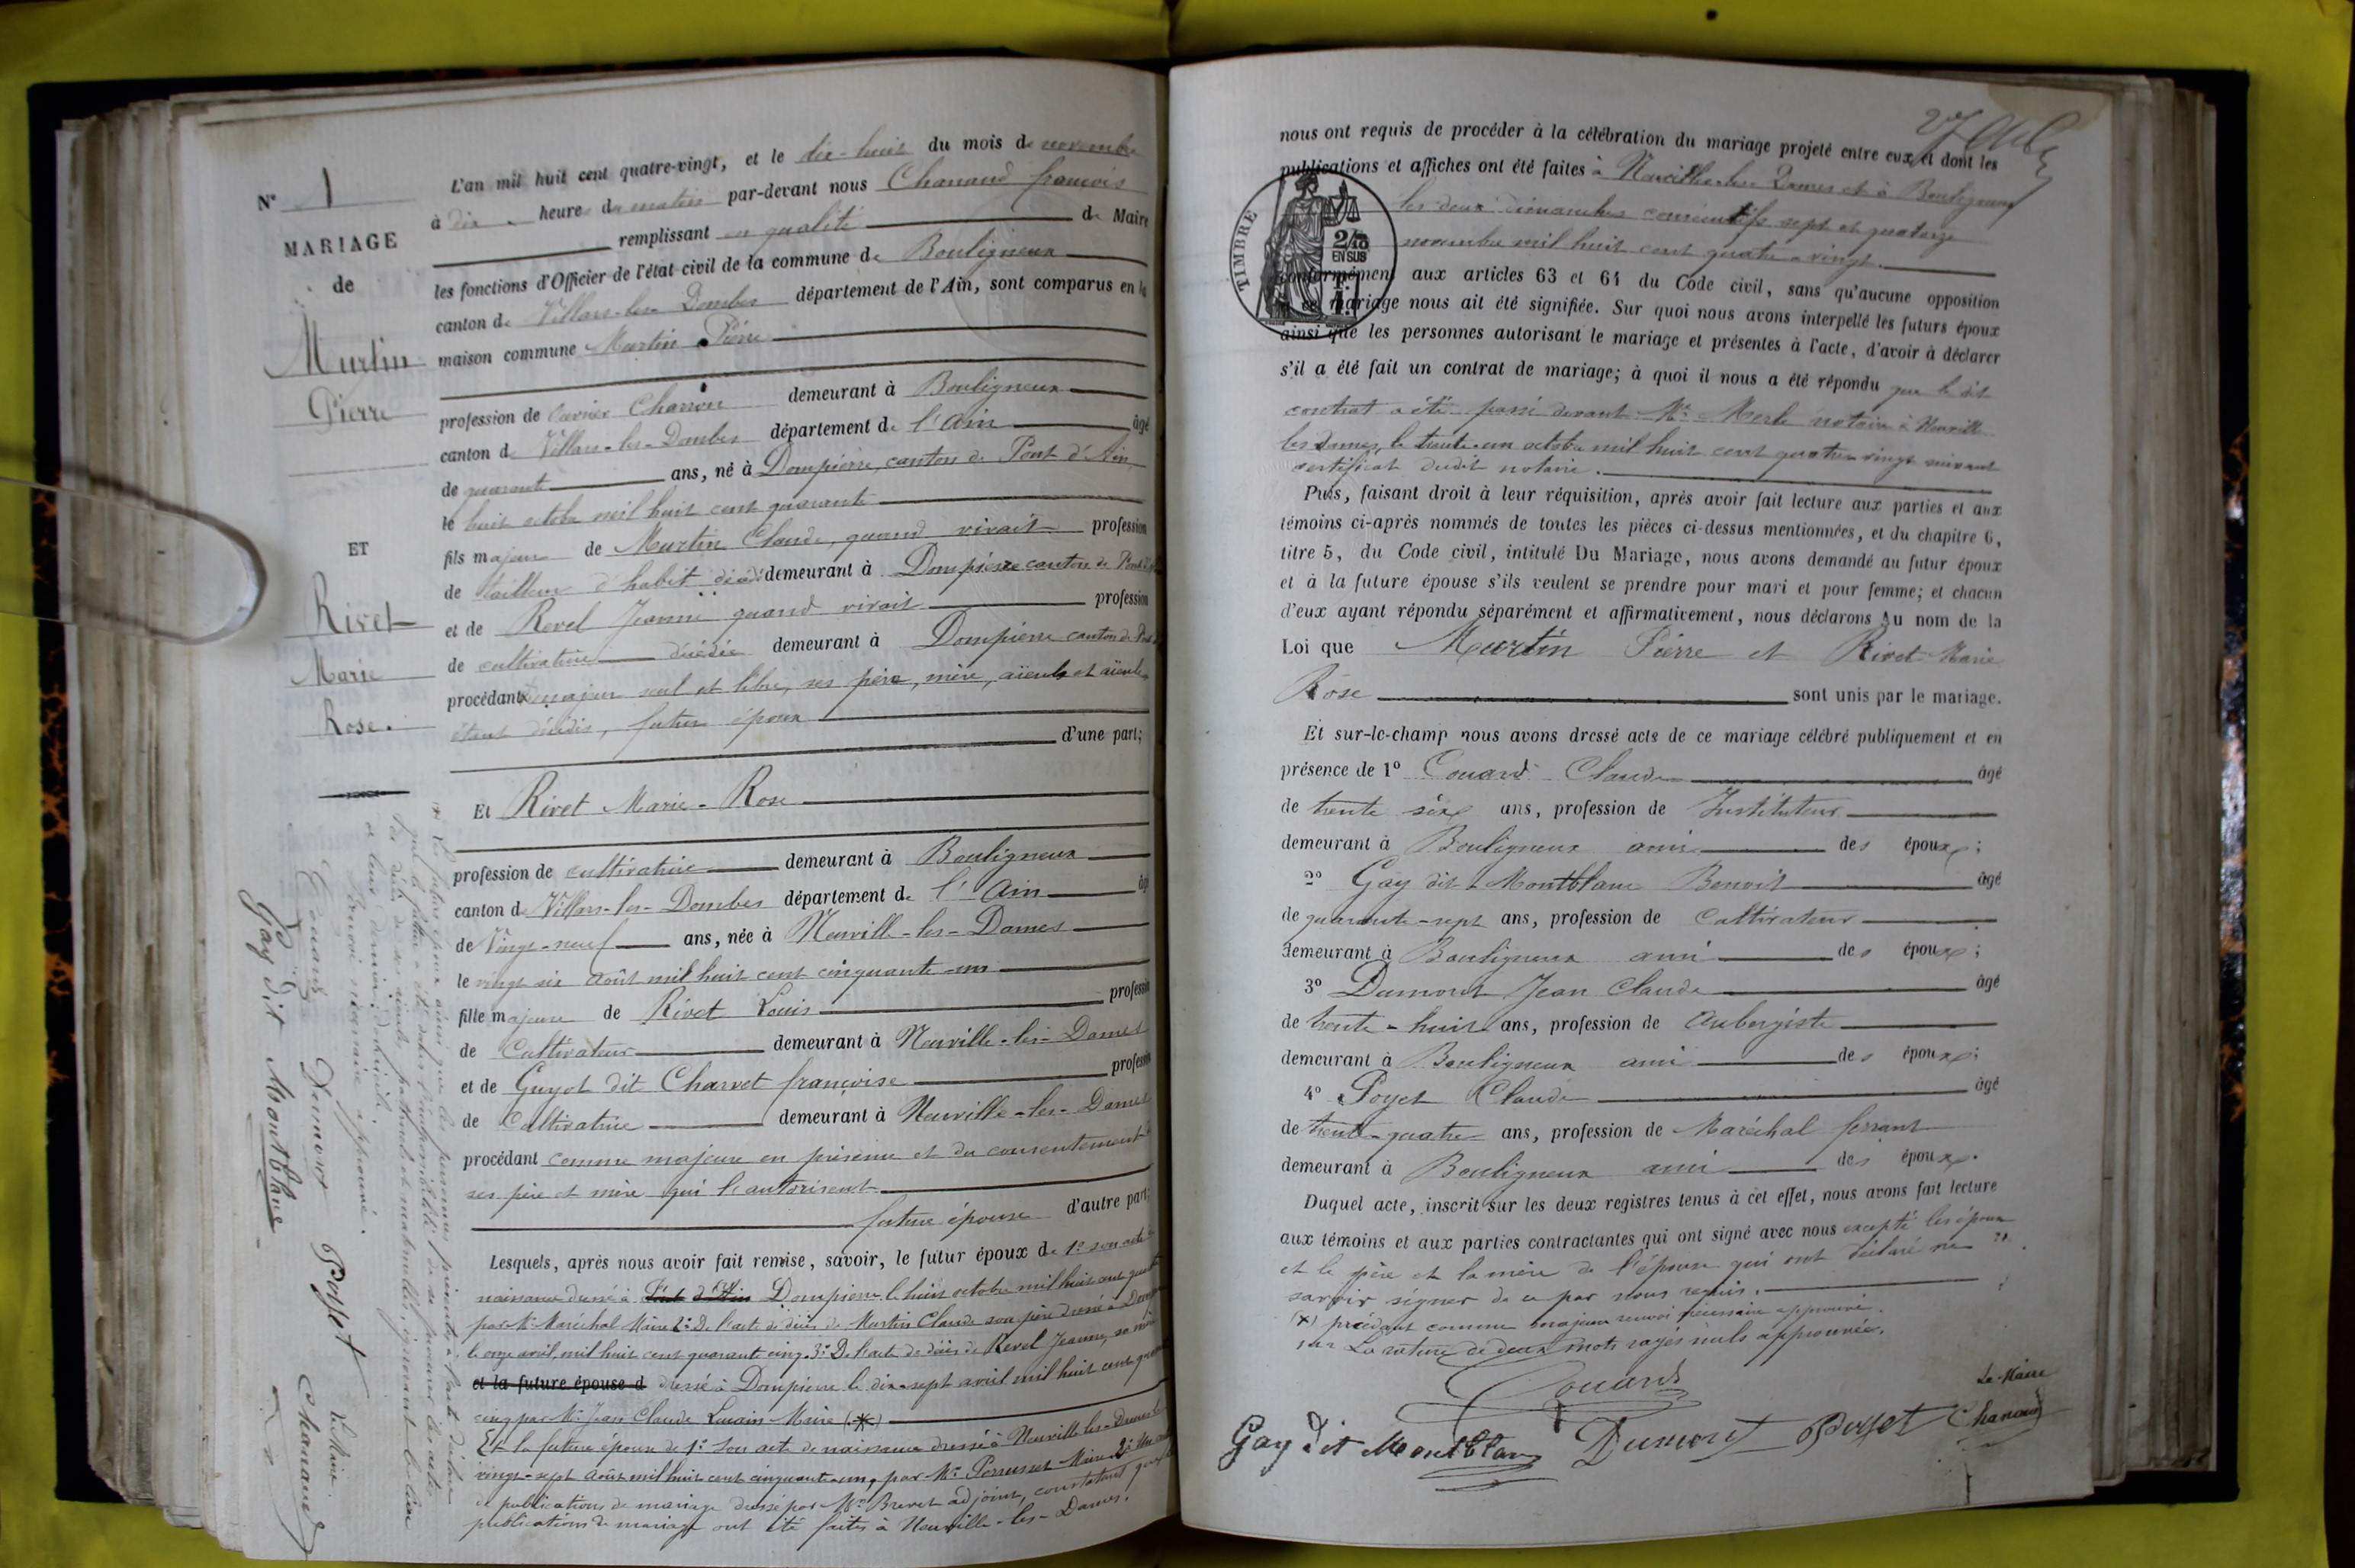 N° 1
MARIAGE
de
Murtin
Pierre
ET
Rivet
Marie
Rose.
L'an mil huit cent quatre-vingt, et le dix-huit du mois de novembre
à dix heures du matin par-devant nous Chanaud françois
remplissant en qualité de Maire
les fonctions d'Officier de l'état-civil de la commune de Bouligneux
canton de Villars-les-Dombes département de l'Ain, sont comparus en la
maison commune Murtin Piérre
profession de ouvrier Charron demeurant à Bouligneux
canton de Villars-les-Dombes département de l'Ain âgé
de quarante ans, né à Dompierre, canton de Pont d'Ain
le huit octobre mil huit cent quarante
fils majeur de Murtin Claude, quand vivait profession
de tailleur d'habit décédé demeurant à Dompierre canton de Pont d'Ain
et de Revel Jeanne quand vivait profession
de cultivatrice décédée demeurant à Dompierre canton de Pont
procédant majeur seul et libre, ses père, mère, aïeuls et aïeules
étant décédés, futur époux
d'une part;
Et Rivet Marie-Rose
profession de cultivatrice demeurant à Bouligneux
canton de Villars-les-Dombes département de l'Ain âgé
de Vingt-neuf ans, née à Neuville-les-Dames
le vingt six Août mil huit cent cinquante-un
fille majeure de Rivet Louis profession
de Cultivateur demeurant à Neuville-les-Dames
et de Guyot dit Charvet françoise profession
de Cultivatrice demeurant à Neuville-les-Dames
procédant comme majeure en présence et du consentement de
ses père et mère qui l'autorisent
future épouse d'autre part;
Lesquels, après nous avoir fait remise, savoir, le futur époux de 1° son acte de
naissance dressé à Pont d'Ain Dompierre le huit octobre mil huit cent quarante
par Mr Maréchal Maire 2° De l'acte de décès de Murtin Claude son père dressé à Dompierre
le onze avril, mil huit cent quarante cinq. 3° De l'acte de décès de Revel Jeanne, sa mère
et la future épouse d dressé à Dompierre le dix-sept avril mil huit cent quarante
cinq par Mr Jean Claude Maire (*)
Et la future épouse de 1° Son acte de naissance dressé à Neuville les-Dames le
vingt-sept Août mil huit cent cinquante-un, par Mr Maire 2° Un acte
de publications de mariage dressé par Mr Brevet adjoint, constatant que les
publications de mariage ont été faites à Neuville-les-Dames.
* Le futur époux ainsi que les personnes présentes à l'acte
qui l'impossibilité de se procurer les actes
de décès de ses aïeuls paternels et maternels, ignorant le lieu
de leur dernier domicile.
Renvoi nécessaire approuvé.
Couard Dumont Poyet Le Maire
Chanaud
Gay dit Montblanc
nous ont requis de procéder à la célébration du mariage projeté entre eux et dont les
publications et affiches ont été faites à Neuville-les-Dames et à Bouligneux
les deux dimanches consécutifs sept et quatorze
novembre mil huit cent quatre-vingt.
conformément aux articles 63 et 64 du Code civil, sans qu'aucune opposition
à ce mariage nous ait été signifiée. Sur quoi nous avons interpellé les futurs époux
ainsi que les personnes autorisant le mariage et présentes à l'acte, d'avoir à déclarer
s'il a été fait un contrat de mariage; à quoi il nous a été répondu que le dit
contrat a été passé devant Me Merle notaire à Neuville
les Dames, le trente-un octobre mil huit cent quatre-vingt suivant
certificat dudit notaire.
TIMBRE
2/10
EN SUS
Puis, faisant droit à leur réquisition, après avoir fait lecture aux parties et aux
témoins ci-après nommés de toutes les pièces ci-dessus mentionnées, et du chapitre 6,
titre 5, du Code civil, intitulé Du Mariage, nous avons demandé au futur époux
et à la future épouse s'ils veulent se prendre pour mari et pour femme; et chacun
d'eux ayant répondu séparément et affirmativement, nous déclarons Au nom de la
Loi que Murtin Pierre et Rivet Marie
Rose sont unis par le mariage.
Et sur-le-champ nous avons dressé acte de ce mariage célébré publiquement et en
présence de 1° Couard Claude âgé
de trente six ans, profession de Instituteur
demeurant à Bouligneux ami des époux;
2° Gay dit Montblanc Benoit âgé
de quarante-sept ans, profession de Cultivateur
demeurant à Bouligneux ami des époux;
3° Dumont Jean Claude âgé
de trente-huit ans, profession de Aubergiste
demeurant à Bouligneux ami des époux;
4° Poyet Claude âgé
de trente-quatre ans, profession de Maréchal ferrant
demeurant à Bouligneux ami des époux.
Duquel acte, inscrit sur les deux registres tenus à cet effet, nous avons fait lecture
aux témoins et aux parties contractantes qui ont signé avec nous excepté les époux
et le père et la mère de l'épouse qui ont déclaré ne
savoir signer de ce par nous requis.
(x) procédant comme majeur renvoi nécessaire approuvé.
La rature de deux mots rayés nuls approuvée.
Couard
Le Maire
Gay dit Montblanc Dumont Poyet Chanaud